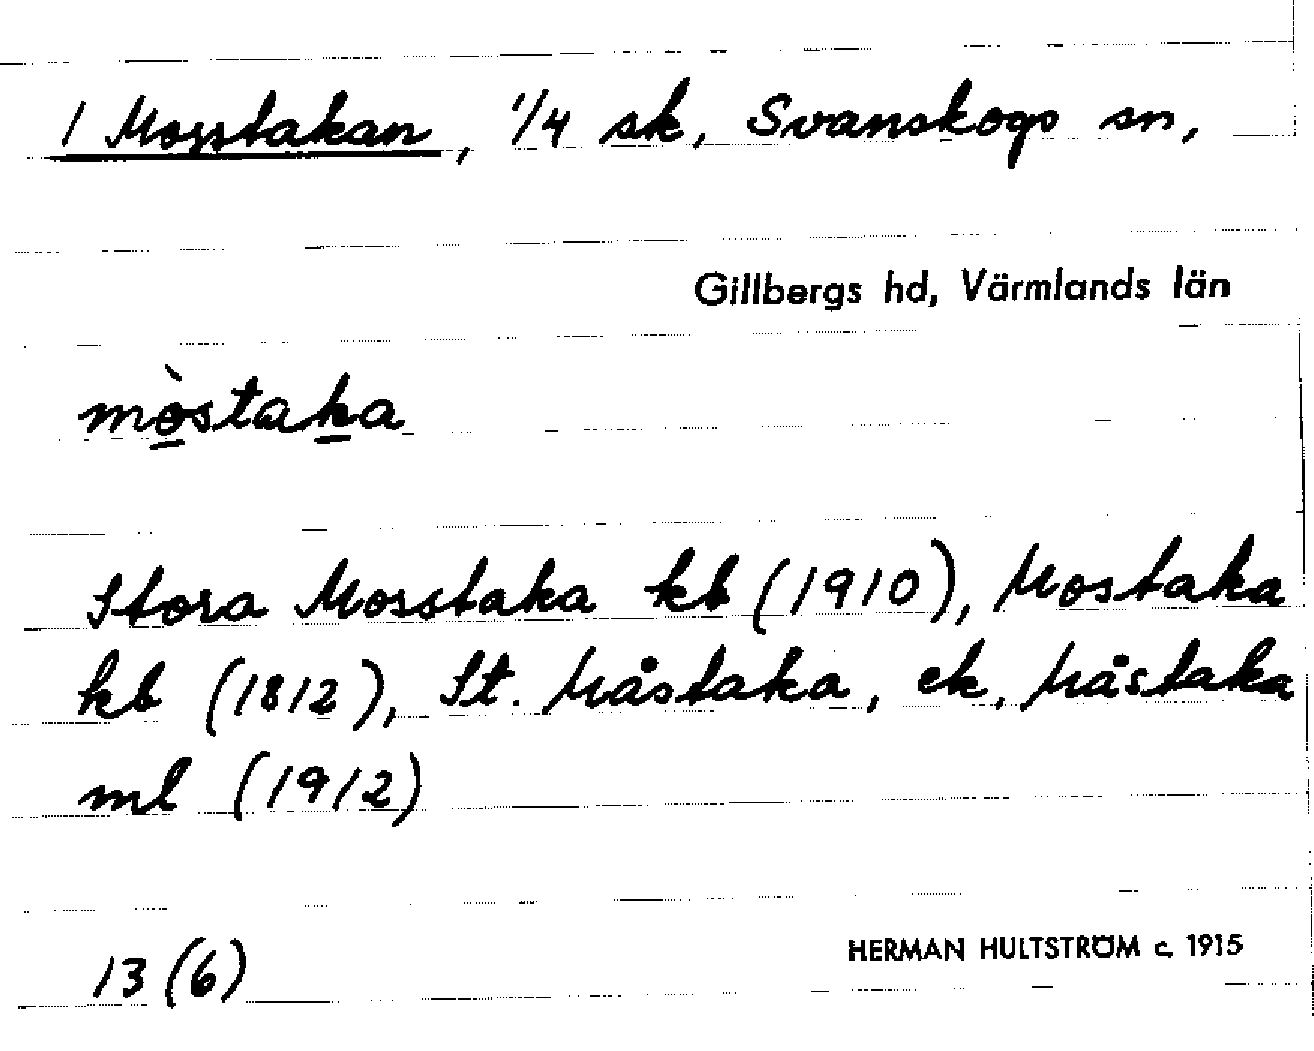 1 Mosstakan, 1/4 sk, Svanskogs sn,
Gillbergs hd, Värmlands län
mòstaka
Stora Mosstaka kb (1910), Mostaka
kb (1812), St. Måstaka, ek. Måstaka
ml (1912)
13 (6)
HERMAN HULTSTRÖM c. 1915